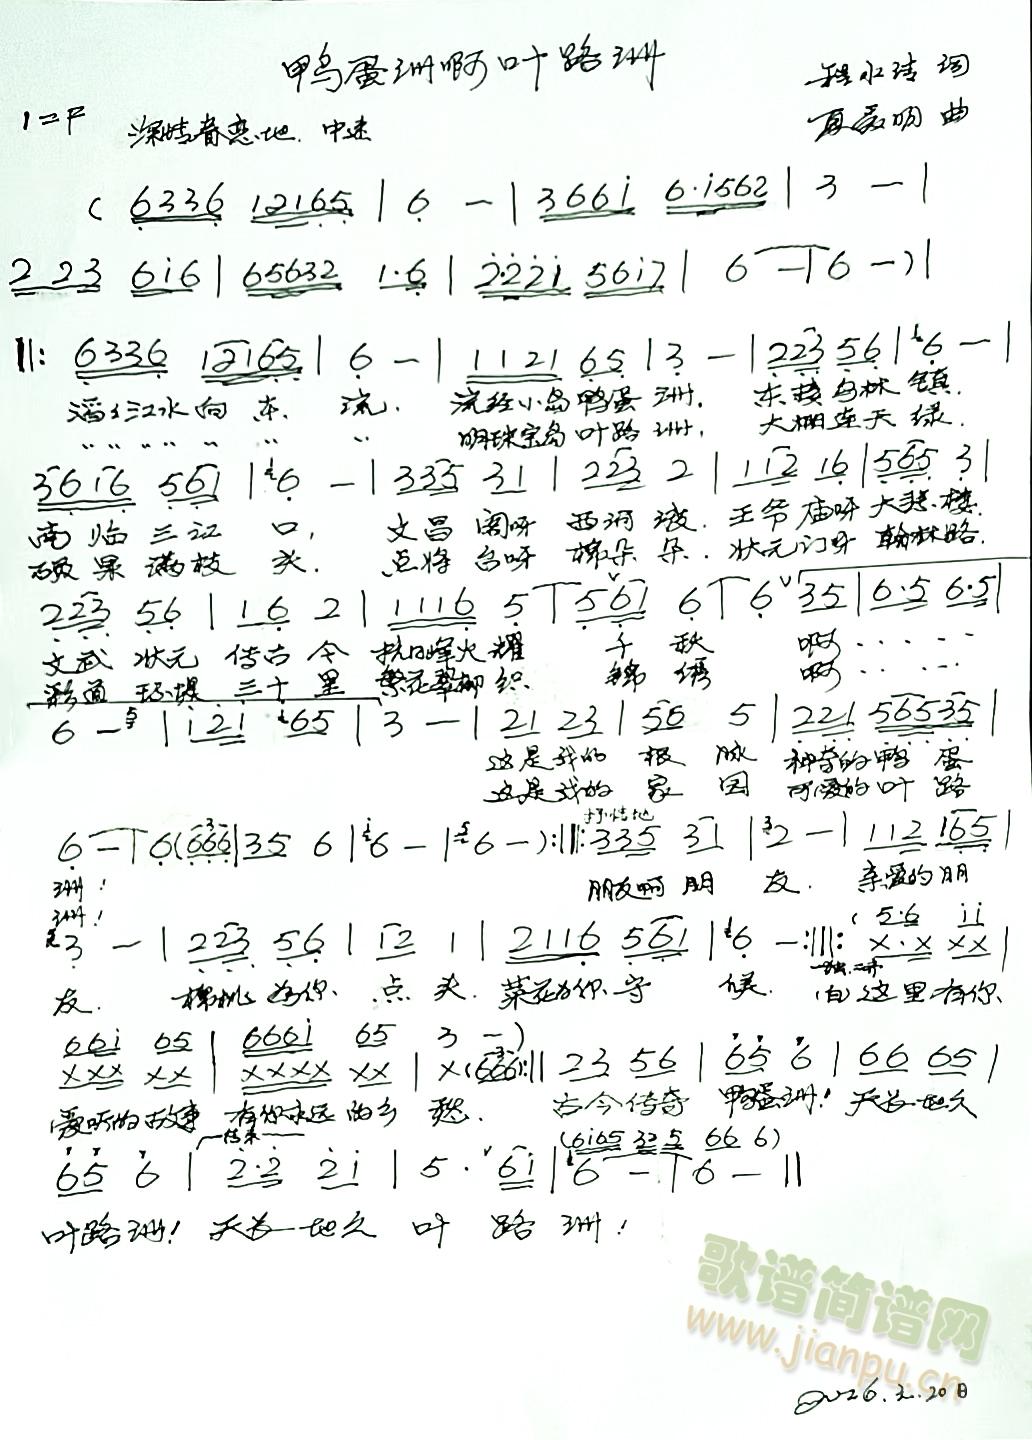 鸭蛋洲啊叶路洲
程水清 词
1=F
深情眷恋地 中速
夏 明 曲
( 6336 12165 | 6 — | 3661 6·1562 | 3 — |
2 23 616 | 65632 1·6 | 2221 5617 | 6 — | 6 —) |
||: 6336 12165 | 6 — | 1121 65 | 3 — | 223 56 | 6 — |
滔滔江水向东流. 流经小岛鸭蛋洲, 东接乌林镇.
〃 〃 〃 〃 〃 〃 〃 明珠宝岛叶路洲, 大棚连天绿.
3616 561 | 6 — | 335 31 | 223 2 | 112 16 | 565 3 |
南临三江口, 文昌阁呀西河渡. 王爷庙呀大悲楼.
硕果满枝头. 点将台呀棉朵朵. 状元门呀翰林路.
223 56 | 16 2 | 1116 5 | 561 6 | 6 35 | 6·5 6·5 |
文武状元传古今 抗日烽火耀千秋 啊 · · · · ·
彩道环堤三十里 繁花翠柳织锦绣 啊 · · · · ·
6 — | 121 65 | 3 — | 21 23 | 56 5 | 221 56535 |
这是我的根脉 神奇的鸭蛋
这是我的家园 可爱的叶路
6 — | 6 (666 | 35 6 | 6 — | 6 —) :||: 335 31 | 2 — | 112 165 |
抒情地
洲! 朋友啊朋友. 亲爱的朋
洲!
( 5·6 11
3 — | 223 56 | 12 1 | 2116 561 | 6 — :||: X·X XX |
友. 棉桃为你点头. 菜花为你守候. (白) 这里有你
661 65 | 6661 65 3 —)
XXX XX | XXXX XX | X (666) :|| 23 56 | 65 6 | 66 65 |
爱听的故事 有你永远的乡愁. 古今传奇 鸭蛋洲! 天长地久
结束 (6165 32 5 66 6)
65 6 | 2·2 21 | 5· 61 | 6 — | 6 — ||
叶路洲! 天长地久 叶路洲!
歌谱简谱网
www.jianpu.cn
2026.2.20日